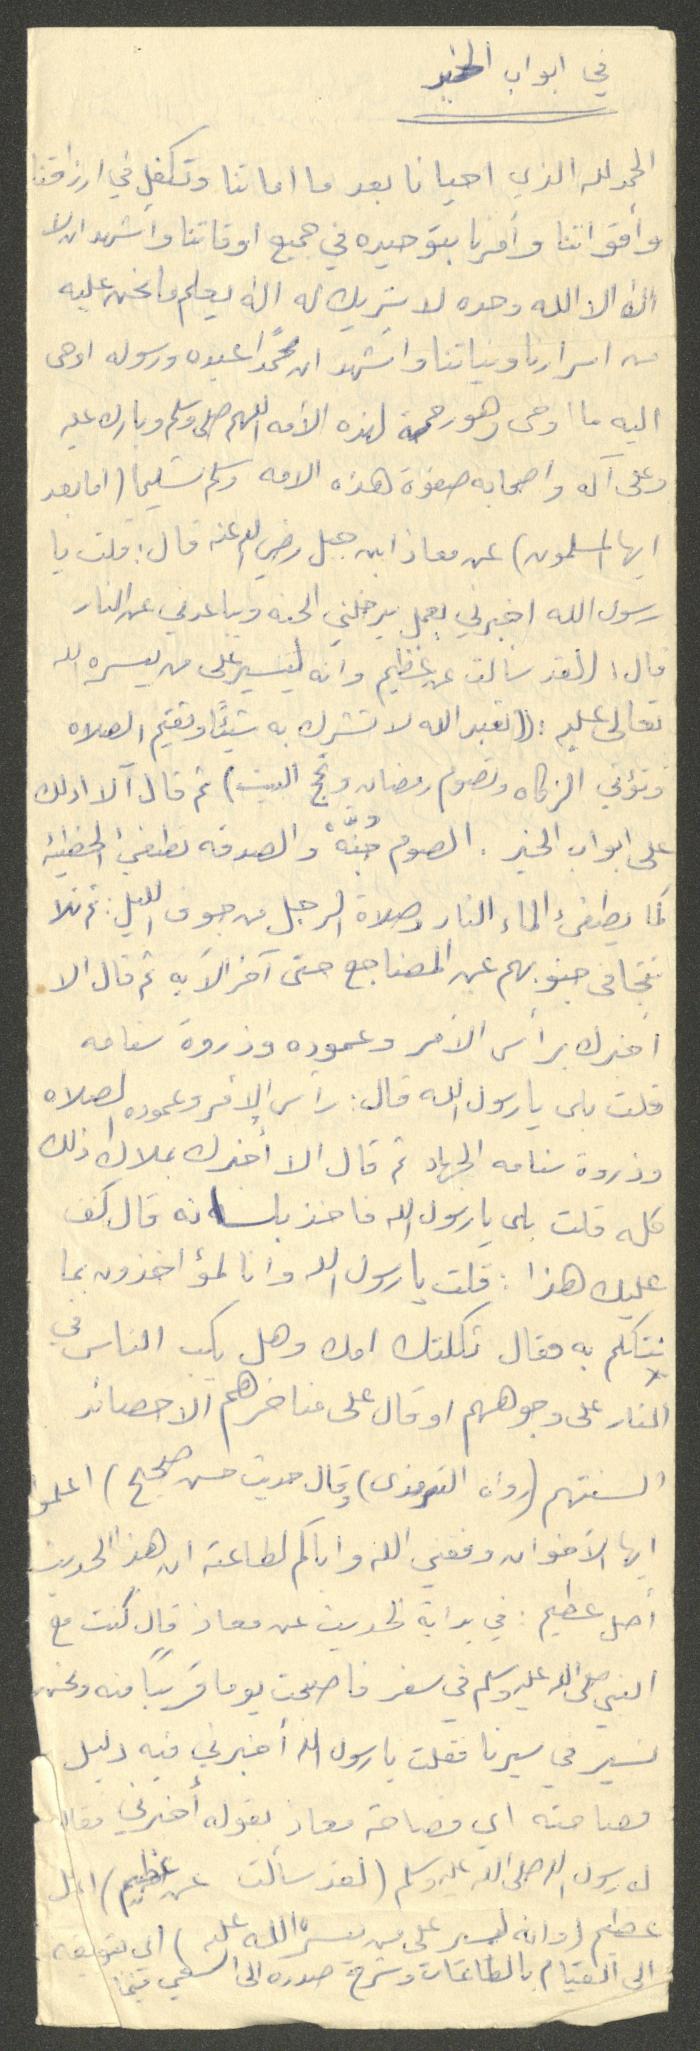 في ابواب الخير
الحمد لله الذي احيانا بعد ما اماتنا وتكفل في ارزاقنا
وأقواتنا وأمرنا بتوحيده في جميع اوقاتنا وأشهد ان لا
اله الا الله وحده لا شريك له اله يعلم ما نحن عليه
من اسرارنا ونياتنا واشهد ان محمدًا عبده ورسوله اوحى
اليه ما اوحى وهو رحمة لهذه الأمه اللهم صلى وسلم وبارك عليه
وعلى آله واصحابه صفوة هذه الامه وسلم تسليما (اما بعد
ايها المسلمون) عن معاذ ابن جبل رضي الله عنه قال: قلت يا
رسول الله اخبرني بعمل يدخلني الجنه ويباعدني عن النار
قال: (لقد سألت عن عظيم وانه ليسير على من يسره الله
تعالى عليه: ((تعبد الله لا تشرك به شيئًا وتقيم الصلاه
وتؤتي الزكاه وتصوم رمضان وتحج البيت) ثم قال آلا ادلك
على ابواب الخير. الصوم جُنَّهٌ والصدقه تطفئ الخطيئه
كما يطفئ الماء النار وصلاة الرجل من جوف الليل: ثم تلا
تتجافى جنوبهم عن المضاجع حتى آخر الآيه ثم قال الا
أخبرك برأس الأمر وعموده وذروة سنامه
قلت بلى يا رسول الله قال: رأس الأمر وعموده الصلاه
وذروة سنامه الجهاد ثم قال الا أخبرك بملاك ذلك
كله قلت بلى يا رسول الله فاخذ بلسانه قال كف
عليك هذا: قلت يا رسول الله وانا لمؤاخذون بما
نتكلم به فقال ثكلتك امك وهل يكب الناس في
النار على وجوههم او قال على مناخرهم الا حصائد
السنتهم (رواه الترمذى) وقال حديث حسن صحيح) اعلموا
ايها الأخوان وفقني الله واياكم لطاعته ان هذا الحديث
أصل عظيم: في بداية الحديث عن معاذ قال كنت مع
النبي صلى الله عليه وسلم في سفر فاصبحت يوما قريبًا منه ونحن
نسير في سيرنا فقلت يا رسول الله أخبرني فيه دليل
فصاحته اي فصاحة معاذ بقوله أخبرني فقال
له رسول الله صلى الله عليه وسلم (لقد سألت عن عظيم)
عظيم (وانه ليسير على من يسره الله عليه) اي بتوفيقه
الى القيام بالطاعات وشرح صدره الى السعي فيما